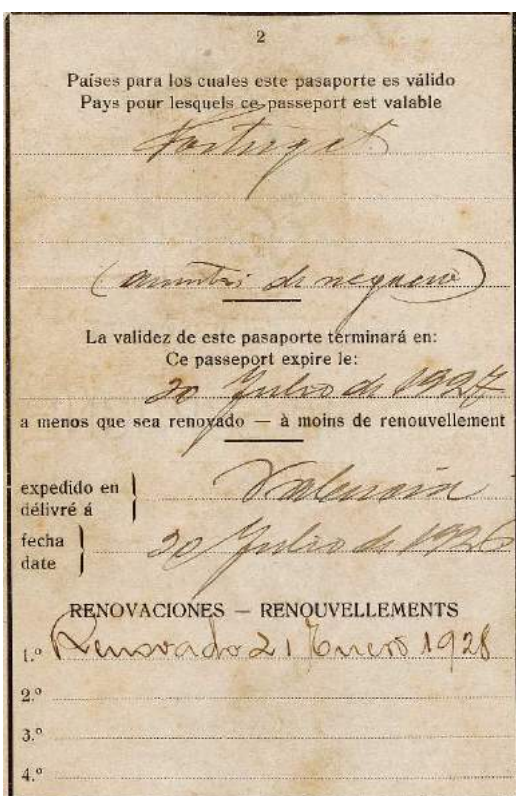 2
Países para los cuales este pasaporte es válido
Pays pour lesquels ce passeport est valable
Portugal
(asuntos de negocio)
La validez de este pasaporte terminará en:
Ce passeport expire le:
20 Julio de 1927
a menos que sea renovado — à moins de renouvellement
expedido en
délivré á
Valencia
fecha
date
20 Julio de 1926
RENOVACIONES — RENOUVELLEMENTS
1.º Renovado 21 Enero 1928
2.º
3.º
4.º